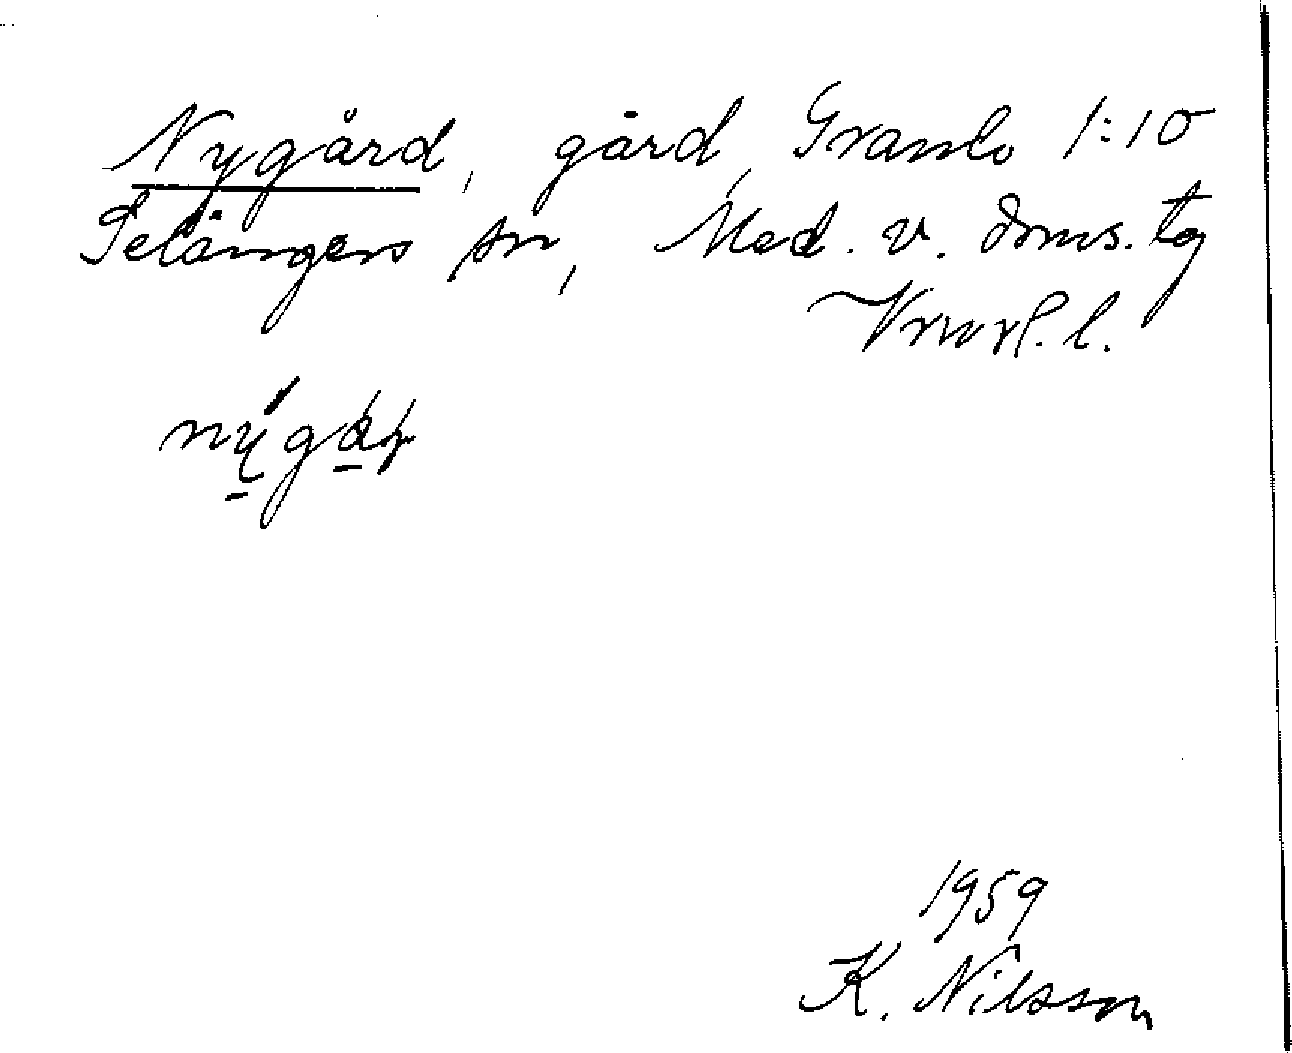 Nygård, gård, Granlo 1:10
Selångers sn, Med. v. doms. tg
Vnorl. l.
1959
K. Nilsson